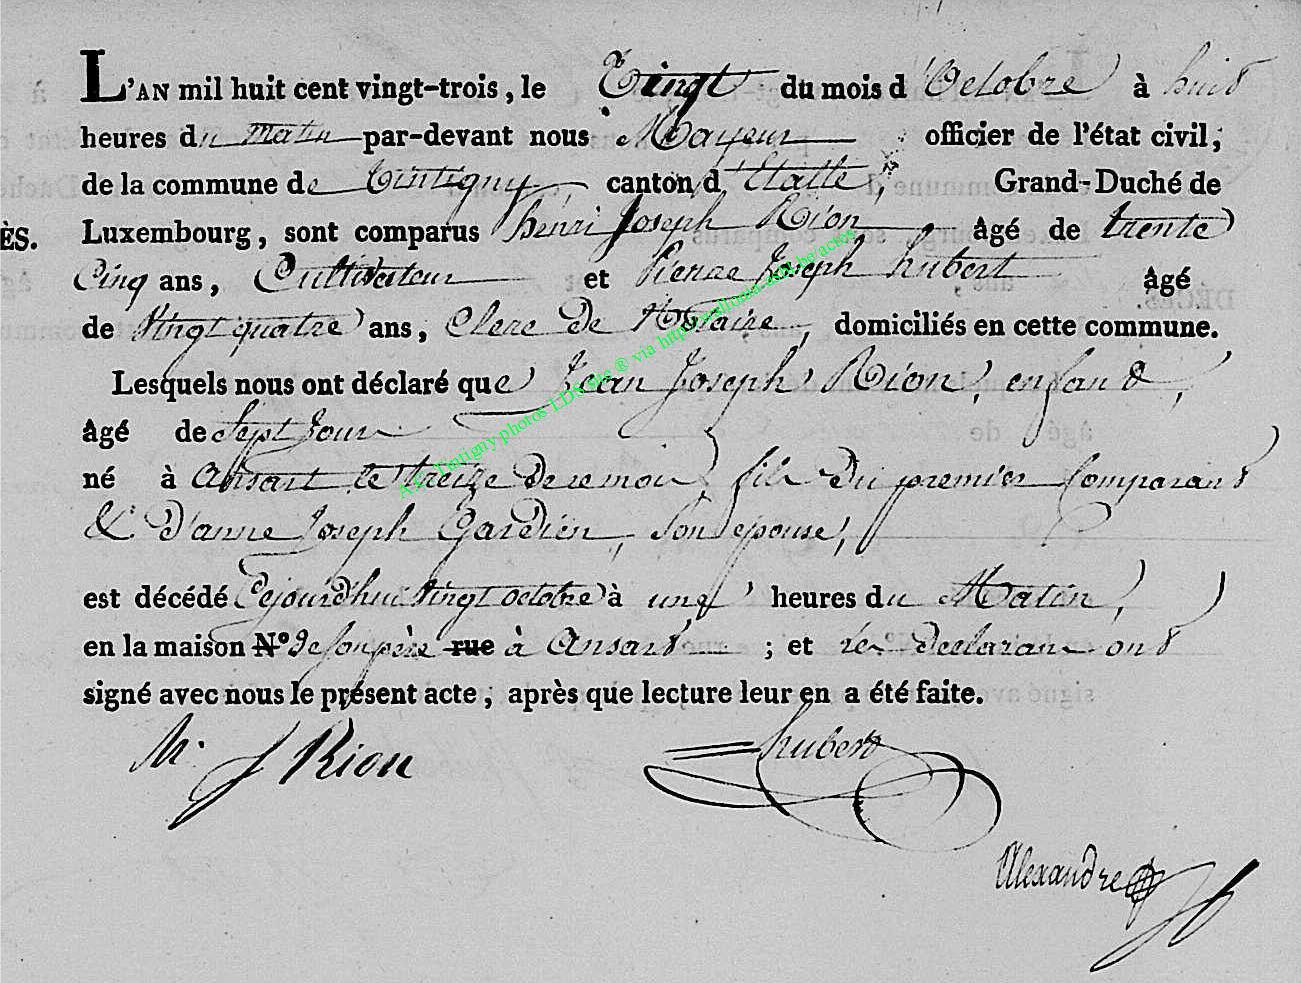 L'AN mil huit cent vingt-trois, le Vingt du mois d'Octobre à huit
heures du matin par-devant nous Mayeur officier de l'état civil,
de la commune de Tintigny, canton d'Etalle, Grand-Duché de
ÈS. Luxembourg, sont comparus henri Joseph Rion âgé de trente
Cinq ans, Cultivateur et Pierre Joseph hubert âgé
de Vingt quatre ans, Clerc de Notaire, domiciliés en cette commune.
Lesquels nous ont déclaré que Jean Joseph Rion, enfant,
âgé de Sept Jour
né à ansart le treize de ce mois, fils du premier Comparant
& d'anne Joseph Gardien, son epouse,
est décédé Cejourd'hui vingt octobre à une heures du Matin,
en la maison N° de son père rue à ansart ; et les declarans ont
signé avec nous le présent acte, après que lecture leur en a été faite.
h. J Rion hubert
Alexandre
A.C. Tintigny photos LDS site ® via http://wallonia-asbl.be/actes